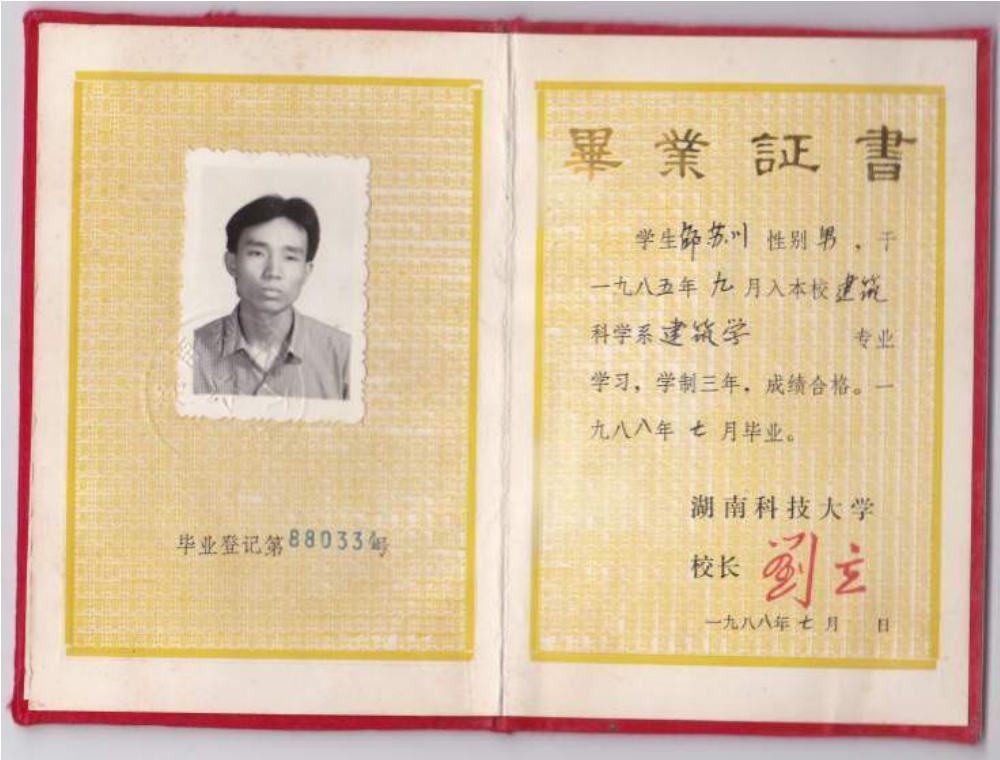 毕业登记第88033号
畢業証書
学生 苏川 性别男，于
一九八五年九月入本校建筑
科学系建筑学 专业
学习，学制三年，成绩合格。一
九八八年七月毕业。
湖南科技大学
校长 劉立
一九八八年七月 日